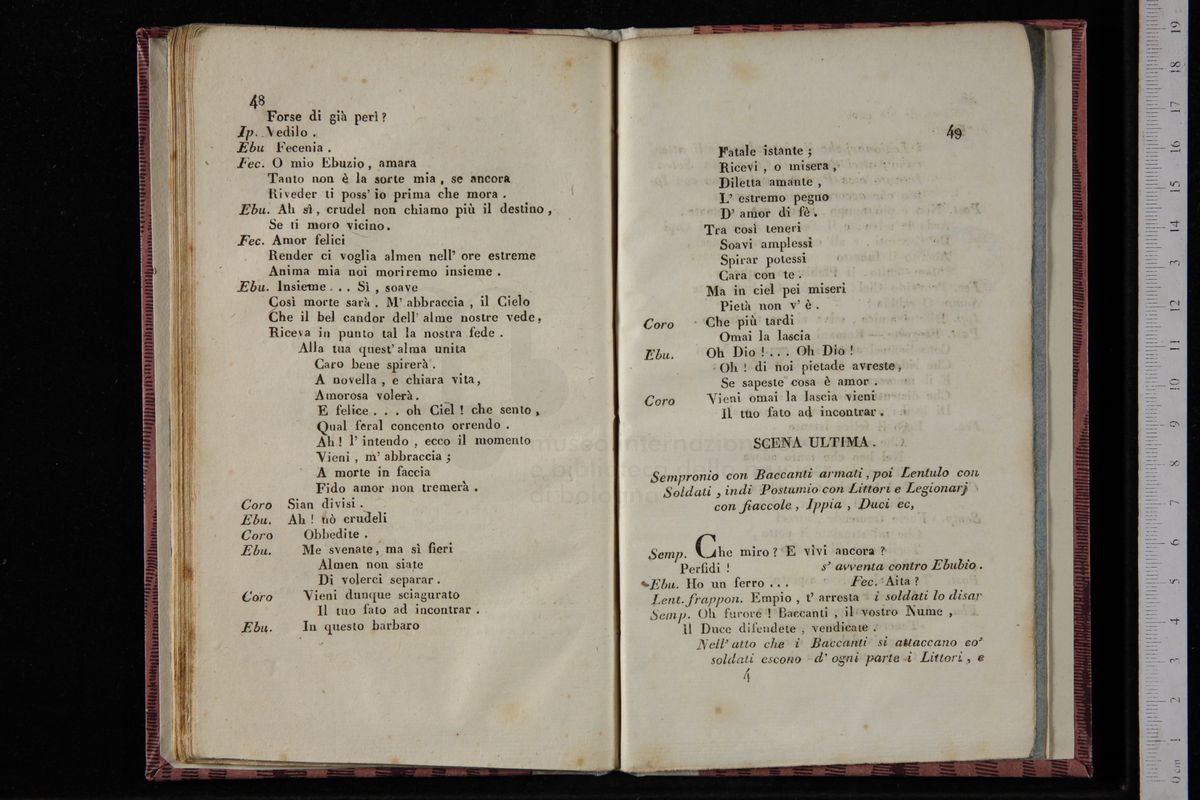 48
Forse di già perì ?
Ip. Vedilo .
Ebu Fecenia .
Fec. O mio Ebuzio , amara
Tanto non è la sorte mia , se ancora
Riveder ti poss' io prima che mora .
Ebu. Ah sì , crudel non chiamo più il destino ,
Se ti moro vicino .
Fec. Amor felici
Render ci voglia almen nell' ore estreme
Anima mia noi moriremo insieme .
Ebu. Insieme . . . Sì , soave
Così morte sarà . M' abbraccia , il Cielo
Che il bel candor dell' alme nostre vede ,
Riceva in punto tal la nostra fede .
Alla tua quest' alma unita
Caro bene spirerà .
A novella , e chiara vita ,
Amorosa volerà .
E felice . . . oh Ciel ! che sento ,
Qual feral concento orrendo .
Ah ! l' intendo , ecco il momento
Vieni , m' abbraccia ;
A morte in faccia
Fido amor non tremerà .
Coro Sian divisi .
Ebu. Ah ! nò crudeli
Coro Obbedite .
Ebu. Me svenate , ma sì fieri
Almen non siate
Di volerci separar .
Coro Vieni dunque sciagurato
Il tuo fato ad incontrar .
Ebu. In questo barbaro
49
Fatale istante ;
Ricevi , o misera ,
Diletta amante ,
L' estremo pegno
D' amor di fè .
Tra così teneri
Soavi amplessi
Spirar potessi
Cara con te .
Ma in ciel pei miseri
Pietà non v' è .
Coro Che più tardi
Omai la lascia
Ebu. Oh Dio ! . . . Oh Dio !
Oh ! di noi pietade avreste ,
Se sapeste cosa è amor .
Coro Vieni omai la lascia vieni
Il tuo fato ad incontrar .
SCENA ULTIMA .
Sempronio con Baccanti armati , poi Lentulo con
Soldati , indi Postumio con Littori e Legionarj
con fiaccole , Ippia , Duci ec,
Semp. Che miro ? E vivi ancora ?
Perfidi ! s' avventa contro Ebubio .
Ebu. Ho un ferro . . . Fec. Aita ?
Lent. frappon. Empio , t' arresta i soldati lo disar
Semp. Oh furore ! Baccanti , il vostro Nume ,
il Duce difendete , vendicate .
Nell' atto che i Baccanti si attaccano co'
soldati escono d' ogni parte i Littori , e
4